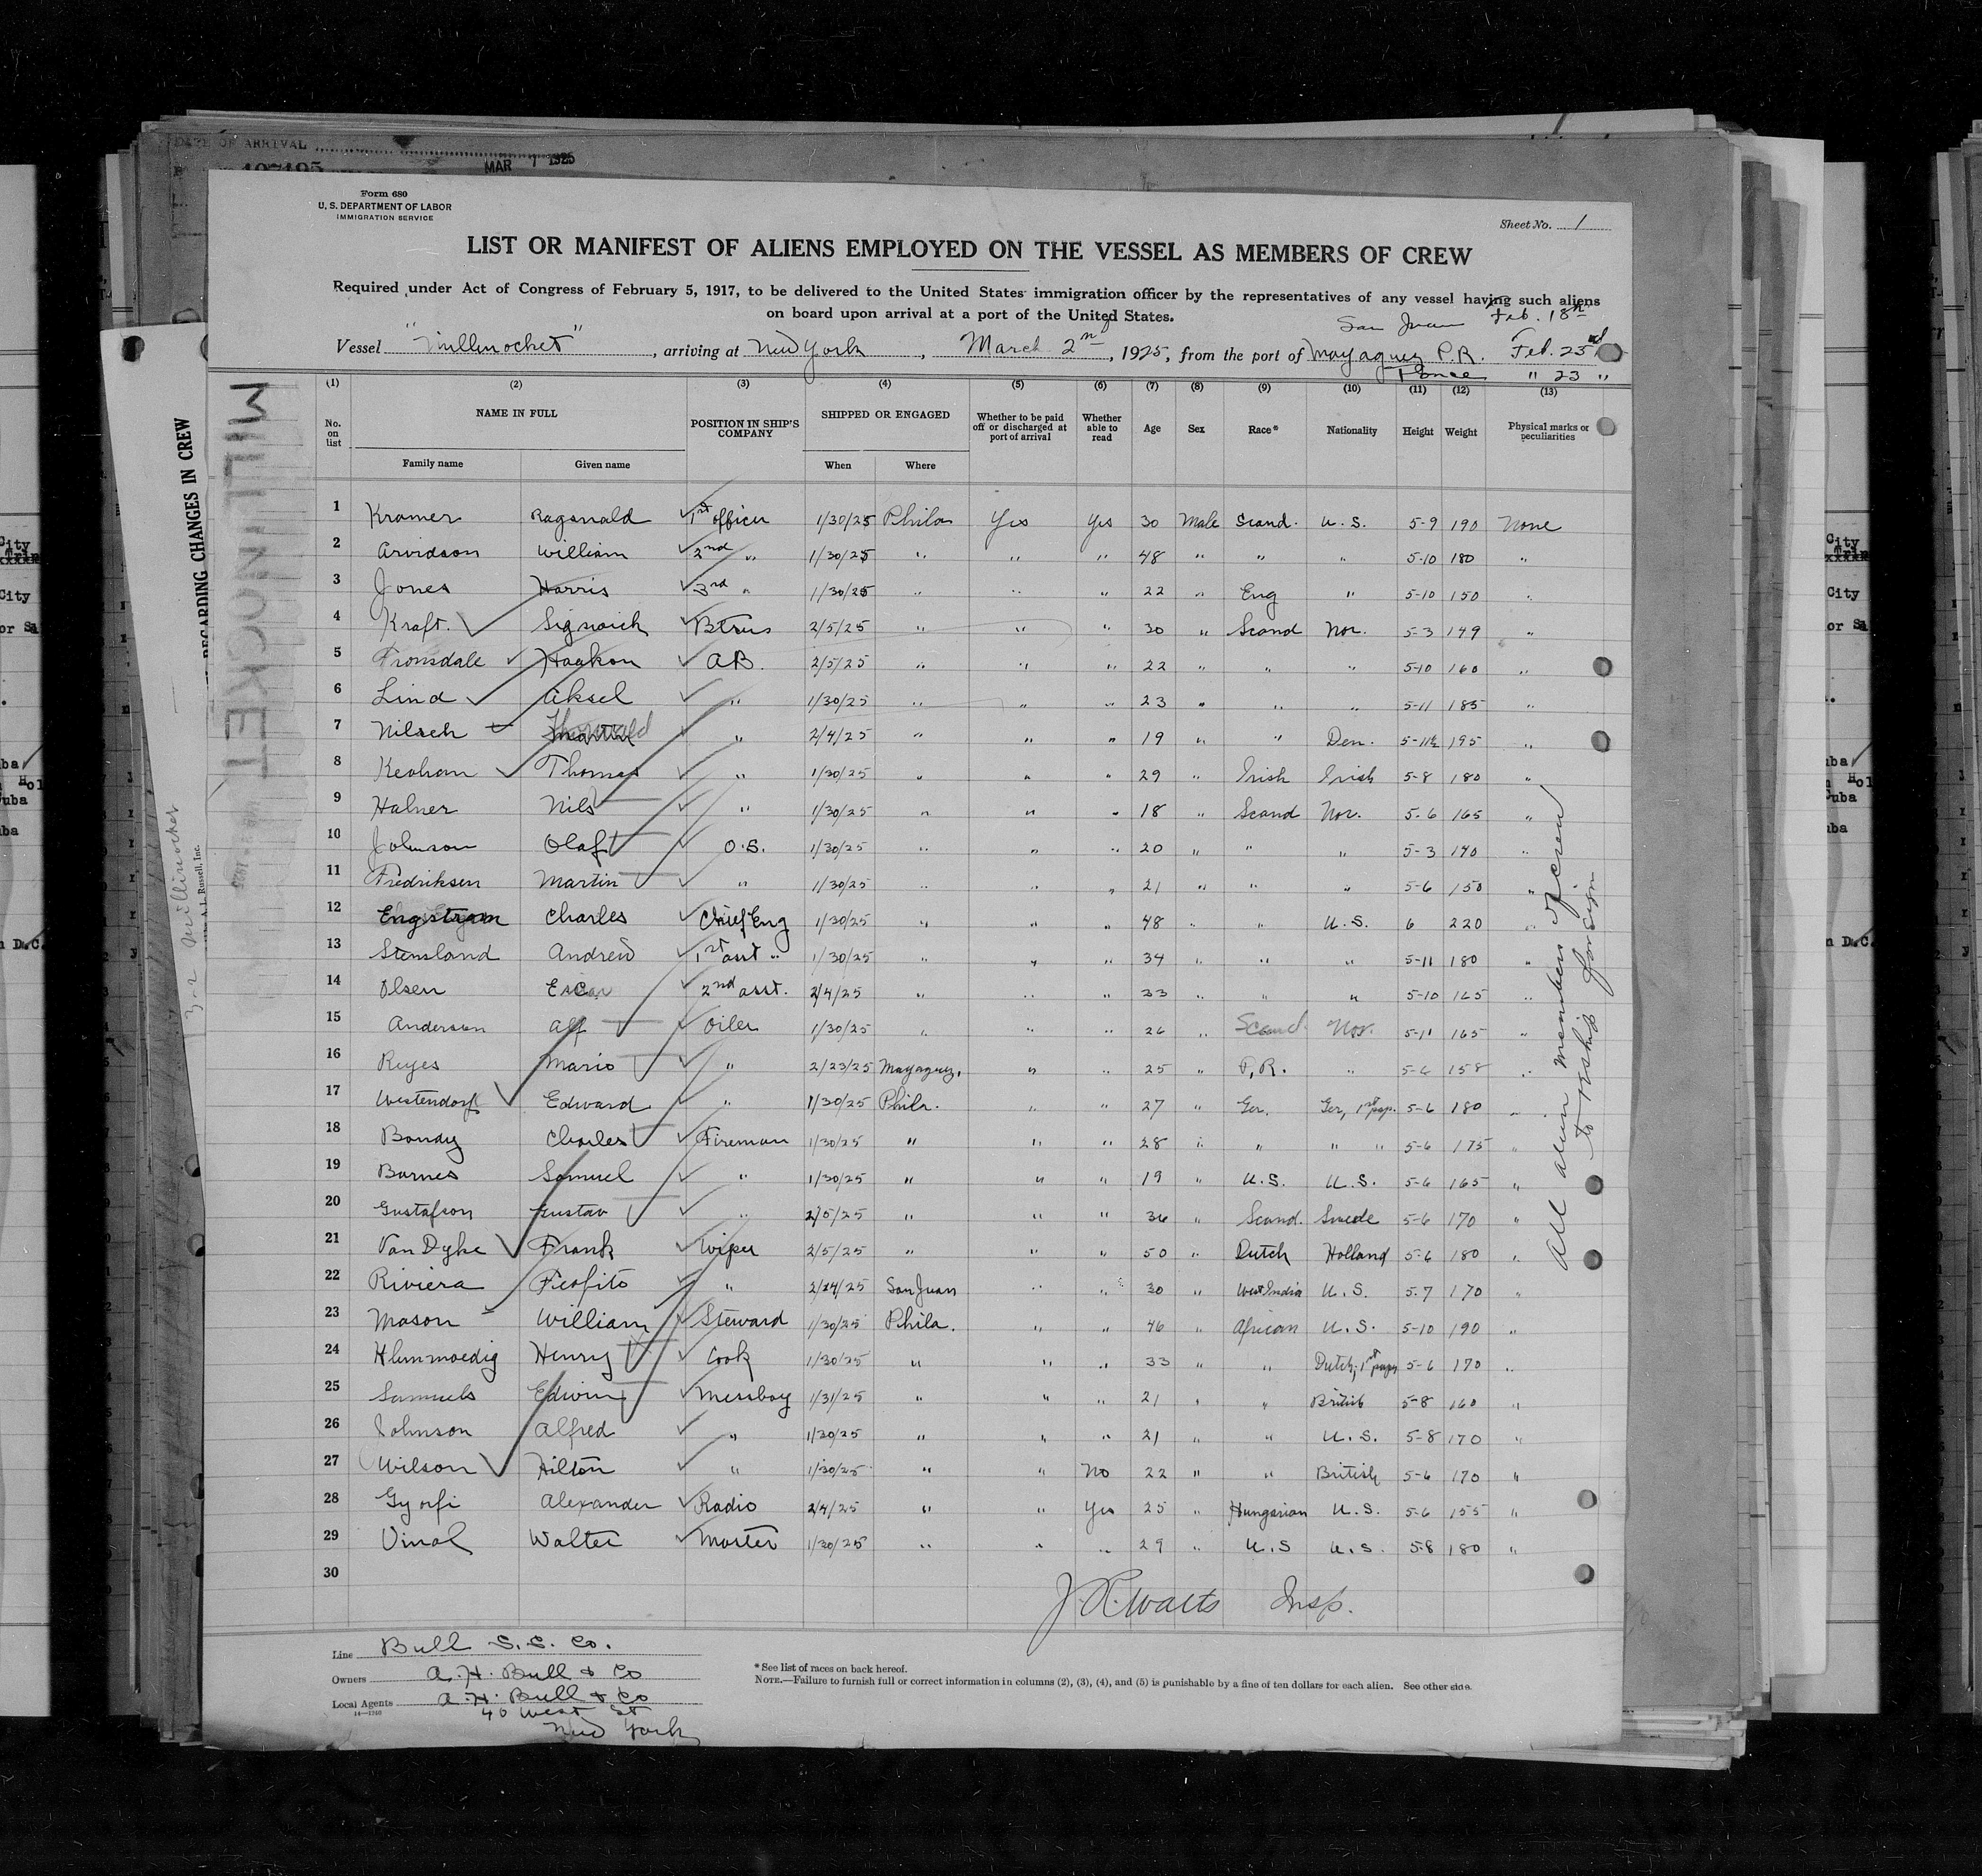 DATE OF ARRIVAL
MAR 1 1925
Form 680
U. S. DEPARTMENT OF LABOR
IMMIGRATION SERVICE
Sheet No. 1
LIST OR MANIFEST OF ALIENS EMPLOYED ON THE VESSEL AS MEMBERS OF CREW
Required under Act of Congress of February 5, 1917, to be delivered to the United States immigration officer by the representatives of any vessel having such aliens
on board upon arrival at a port of the United States.
San Juan Feb. 18th
Vessel "Millinocket", arriving at New York, March 2nd, 1925, from the port of Mayaguez P.R. Feb. 25
Ponce " 23 "
(1) (2) (3) (4) (5) (6) (7) (8) (9) (10) (11) (12) (13)
No. on list NAME IN FULL POSITION IN SHIP'S COMPANY SHIPPED OR ENGAGED Whether to be paid off or discharged at port of arrival Whether able to read Age Sex Race* Nationality Height Weight Physical marks or peculiarities
Family name Given name When Where
1 Kramer Ragnvald 1st officer 1/30/25 Phila Yes Yes 30 Male Scand. U.S. 5-9 190 None
2 Arvidson William 2nd " 1/30/25 " " " 48 " " " 5-10 180 "
3 Jones Harris 3rd " 1/30/25 " " " 22 " Eng " 5-10 150 "
4 Kraft. 2/5/25 " " " 30 " Scand Nor. 5-3 149 "
5 Fronsdale Haakon A.B. 2/5/25 " " " 22 " " " 5-10 160 "
6 Lind Aksel " 1/30/25 " " " 23 " " " 5-11 185 "
7 Nilsen Thorvald " 2/4/25 " " " 19 " " Den. 5-11½ 195 "
8 Keohan Thomas " 1/30/25 " " " 29 " Irish Irish 5-8 180 "
9 Halner Nils " 1/30/25 " " " 18 " Scand Nor. 5-6 165 "
10 Johnson Olaf O.S. 1/30/25 " " " 20 " " " 5-3 140 "
11 Fredriksen Martin " 1/30/25 " " " 21 " " " 5-6 150 "
12 Engstrom Charles Chief Eng 1/30/25 " " " 48 " " U.S. 6 220 "
13 Stensland Andrew 1st asst " 1/30/25 " " " 34 " " " 5-11 180 "
14 Olsen 2nd asst. 2/4/25 " " " 33 " " " 5-10 165 "
15 Andersen Alf Oiler 1/30/25 " " " 26 " Scand. Nor. 5-11 165 "
16 Reyes Mario " 2/23/25 Mayaguez. " " 25 " P.R. " 5-6 158 "
17 Westendorf Edward " 1/30/25 Phila. " " 27 " Ger. Ger, 1st pap. 5-6 180 "
18 Bondy Charles Fireman 1/30/25 " " " 28 " " " " 5-6 175 "
19 Barnes Samuel " 1/30/25 " " " 19 " U.S. U.S. 5-6 165 "
20 Gustafson Gustav " 2/5/25 " " " 36 " Scand. Swede 5-6 170 "
21 Van Dyke Frank Wiper 2/5/25 " " " 50 " Dutch Holland 5-6 180 "
22 Riviera " 2/24/25 San Juan " " 30 " West India U.S. 5-7 170 "
23 Mason William Steward 1/30/25 Phila. " " 46 " African U.S. 5-10 190 "
24 Henry Cook 1/30/25 " " " 33 " " Dutch, 1st paps 5-6 170 "
25 Samuels Edwin Messboy 1/31/25 " " " 21 " " British 5-8 160 "
26 Johnson Alfred " 1/30/25 " " " 21 " " U.S. 5-8 170 "
27 Wilson Hilton " 1/30/25 " " No 22 " " British 5-6 170 "
28 Gyorfi Alexander Radio 2/4/25 " " Yes 25 " Hungarian U.S. 5-6 155 "
29 Vinal Walter Master 1/30/25 " " " 29 " U.S U.S. 5-8 180 "
30
J. R. Watts Insp.
All alien members of crew
to reship foreign
Line Bull S.S. Co.
Owners A. H. Bull & Co
Local Agents A. H. Bull & Co
40 West St
New York
14—1240
* See list of races on back hereof.
NOTE.—Failure to furnish full or correct information in columns (2), (3), (4), and (5) is punishable by a fine of ten dollars for each alien. See other side.
MILLINOCKET
REGARDING CHANGES IN CREW
3-2 Millinocket